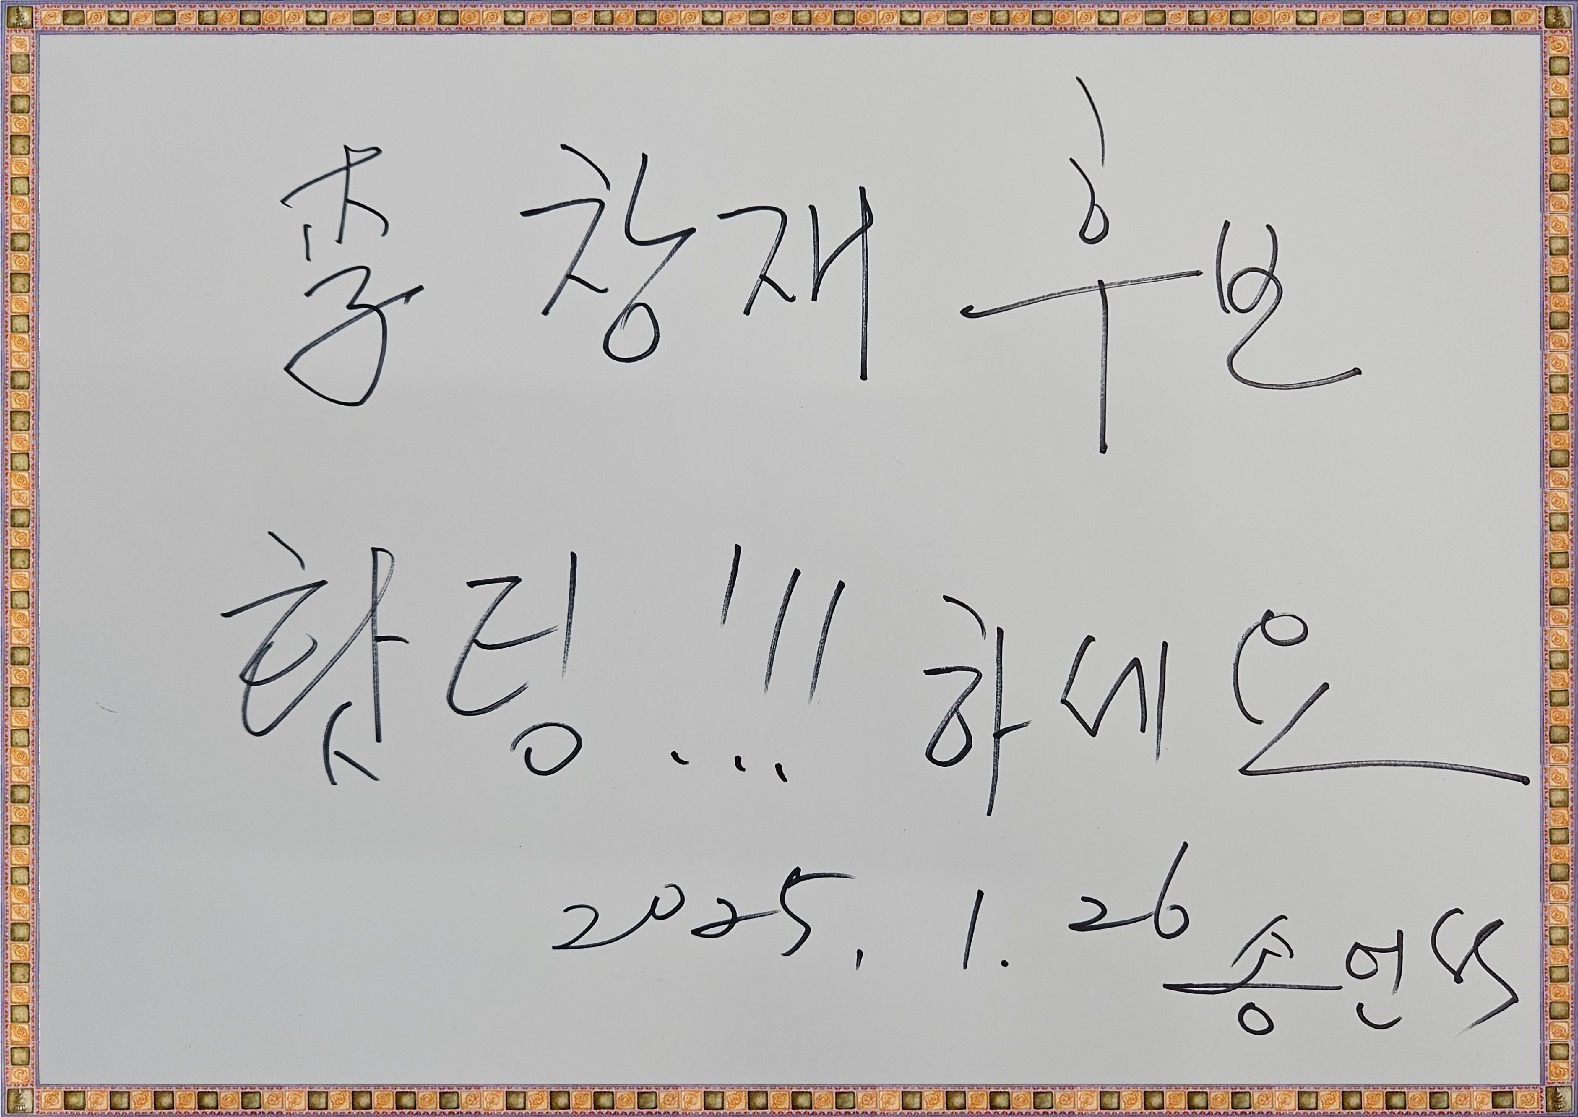 李 창재 후보
홧팅!!! 하세요
2025. 1. 26 송언